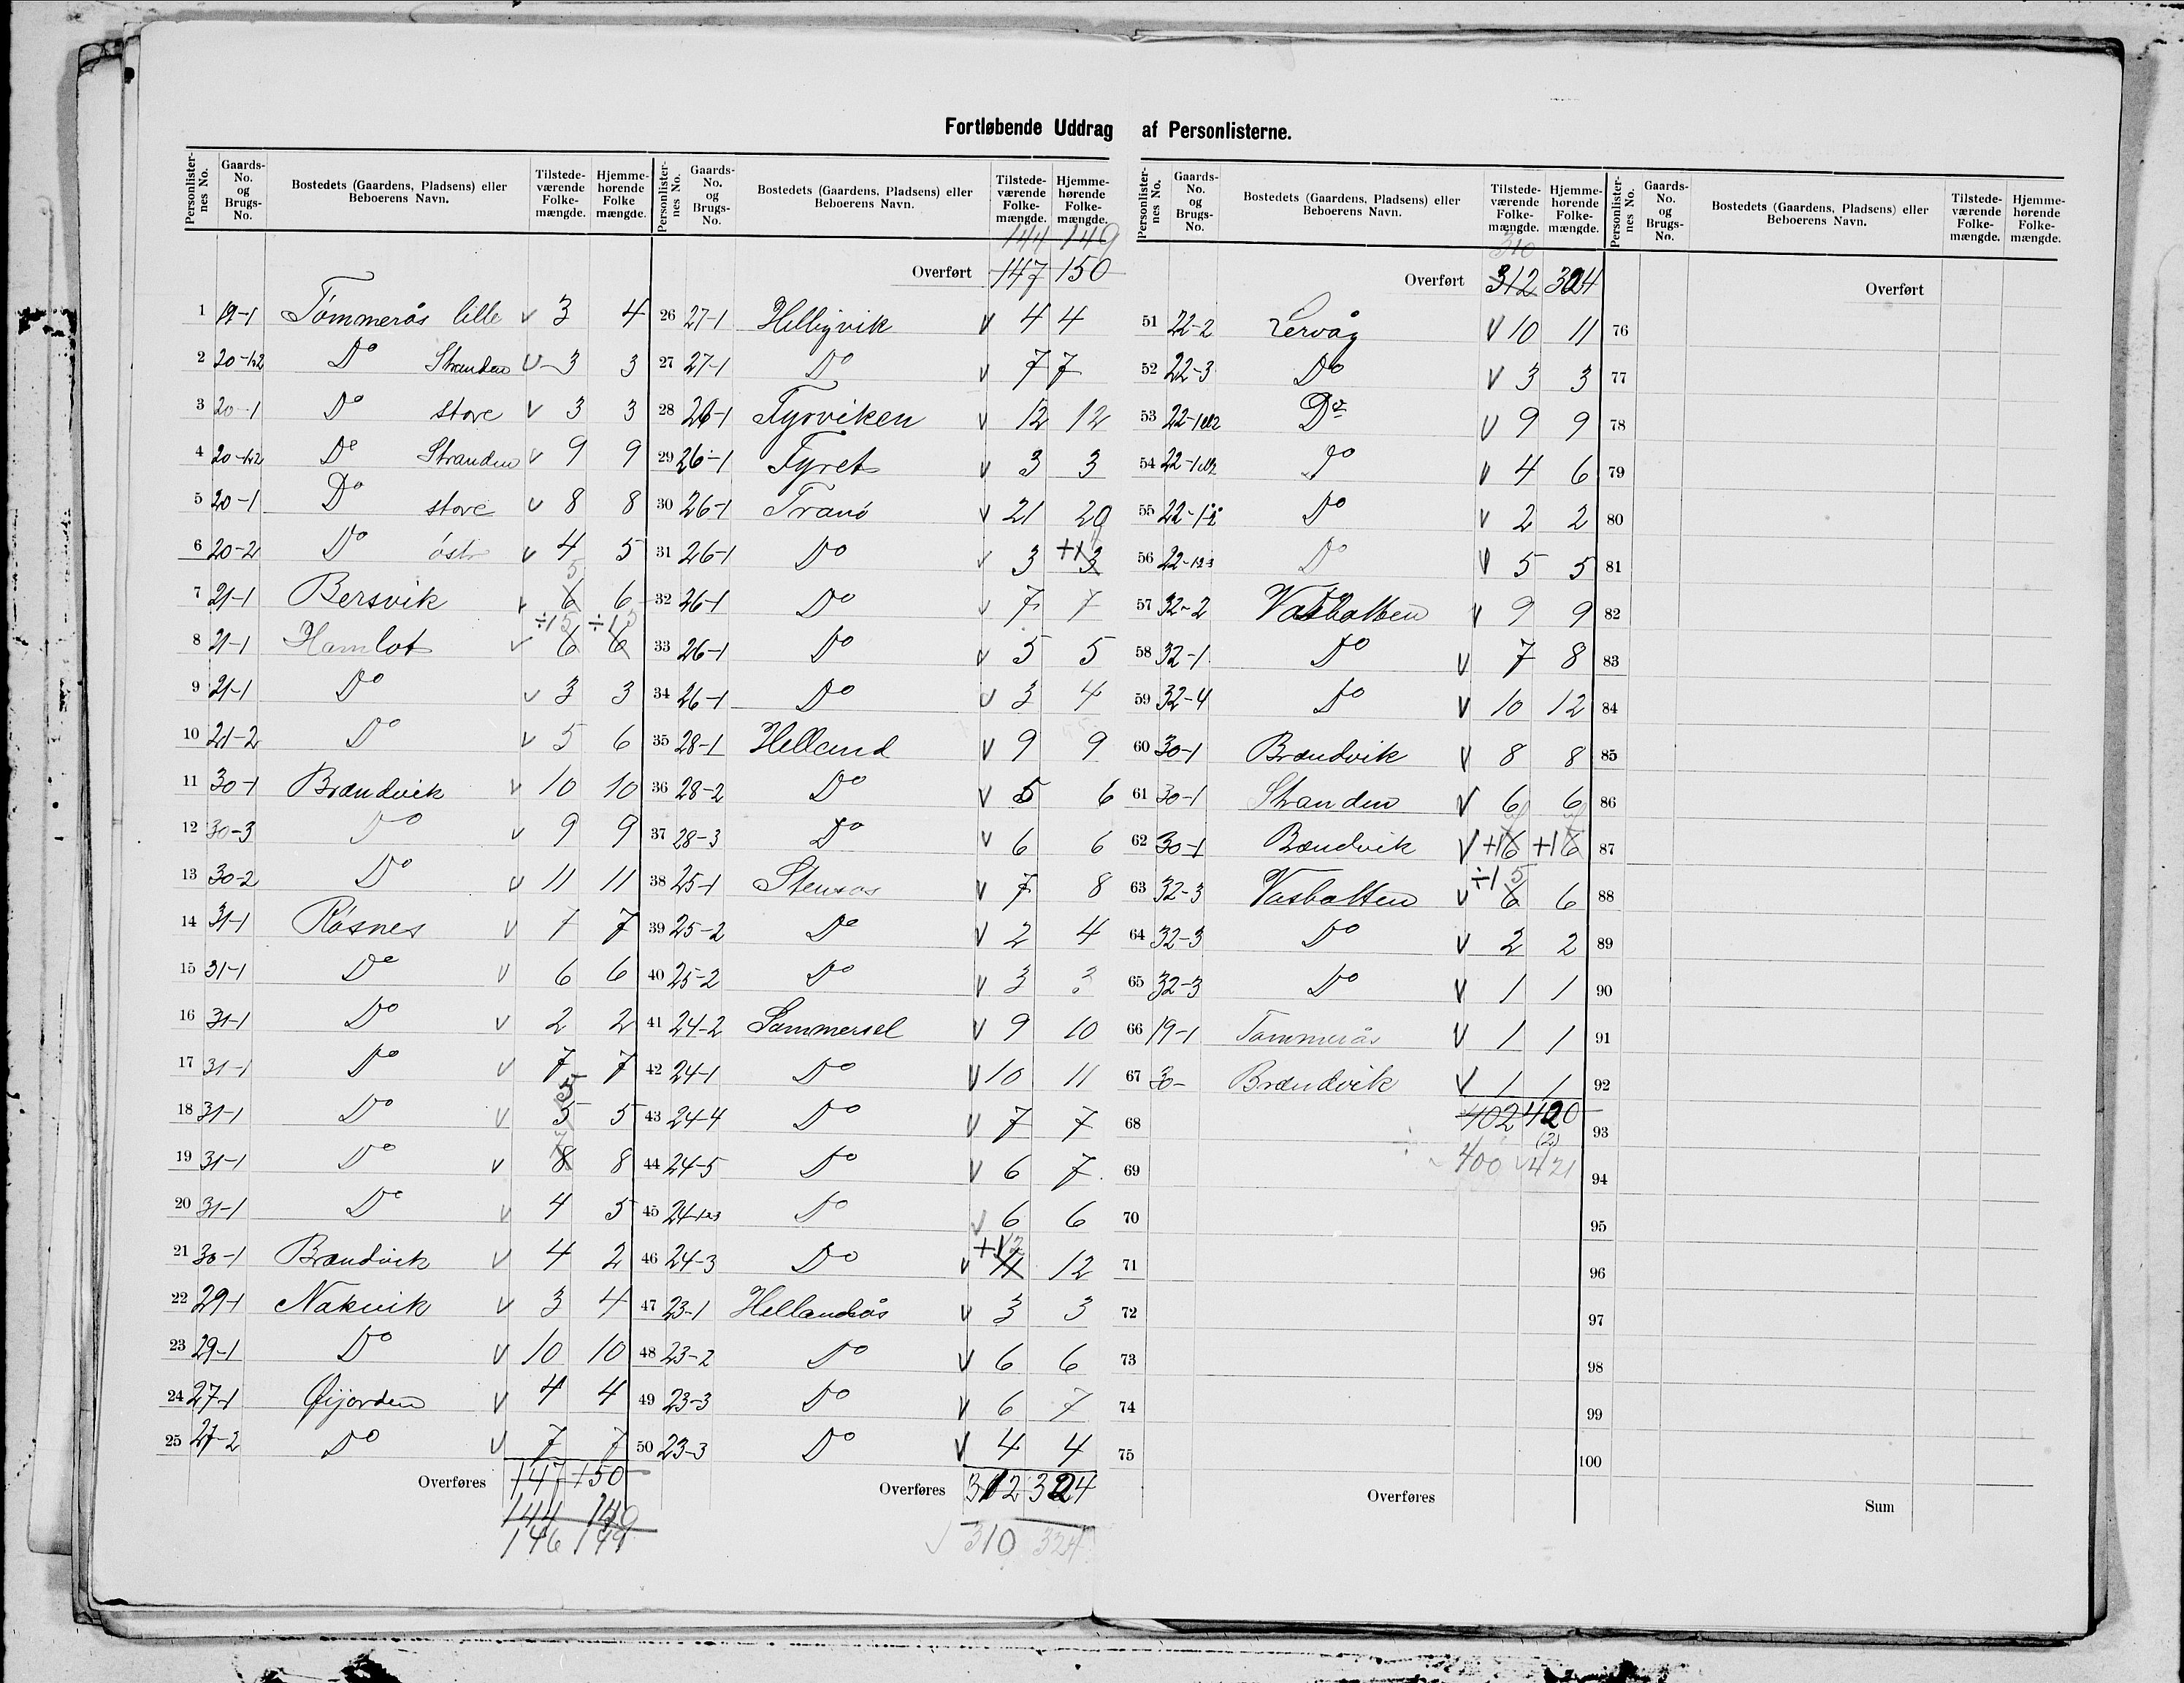 Fortløbende Uddrag af Personlisterne.
Personlister-nes No. Gaards-No. og Brugs-No. Bostedets (Gaardens, Pladsens) eller Beboerens Navn. Tilstede-værende Folke-mængde. Hjemme-hørende Folke mængde.
1 19-1 Tømmerås lille v 3 4
2 20-1,2 Do Stranden v 3 3
3 20-1 Do store v 3 3
4 20-1,2 Do Stranden v 9 9
5 20-1 Do store v 8 8
6 20-2 Do østr v 4 5
7 21-1 Bersvik v 6 5 6
8 21-1 Hamlot v ÷1 5 6 ÷1 5 6
9 21-1 Do v 3 3
10 21-2 Do v 5 6
11 30-1 Brændvik v 10 10
12 30-3 Do v 9 9
13 30-2 Do v 11 11
14 31-1 Røsnes v 7 7
15 31-1 Do v 6 6
16 31-1 Do v 2 2
17 31-1 Do v 7 7
18 31-1 Do v 5 5 5
19 31-1 Do v 8 7 8
20 31-1 Do v 4 5
21 30-1 Brændvik v 4 2
22 29-1 Nakvik v 3 4
23 29-1 Do v 10 10
24 27-1 Øijorden v 4 4
25 27-2 Do v 7 7
Overføres 147 150
144 149
146 149
Personlister-nes No. Gaards-No. og Brugs-No. Bostedets (Gaardens, Pladsens) eller Beboerens Navn. Tilstede-værende Folke-mængde. Hjemme-hørende Folke-mængde.
144 149
Overført 147 150
26 27-1 Helligvik v 4 4
27 27-1 Do v 7 7
28 26-1 Fyrviken v 12 12
29 26-1 Fyret v 3 3
30 26-1 Tranø v 21 20
31 26-1 Do v 3 +1 3 4
32 26-1 Do v 7 7
33 26-1 Do v 5 5
34 26-1 Do v 3 4
35 28-1 Helland v 9 9
36 28-2 Do v 5 6
37 28-3 Do v 6 6
38 25-1 Stensås v 7 8
39 25-2 Do v 2 4
40 25-2 Do v 3 3
41 24-2 Sammersel v 9 10
42 24-1 Do v 10 11
43 24-4 Do v 7 7
44 24-5 Do v 6 7
45 24-1,2,3 Do v 6 6
46 24-3 Do v +1 12 11 12
47 23-1 Hellandsås v 3 3
48 23-2 Do v 6 6
49 23-3 Do v 6 7
50 23-3 Do v 4 4
Overføres 312 324
v 310 324
Personlister-nes No. Gaards-No. og Brugs-No. Bostedets (Gaardens, Pladsens) eller Beboerens Navn. Tilstede-værende Folke-mængde. Hjemme-hørende Folke-mængde.
310
Overført 312 324
51 22-2 Lervåg v 10 11
52 22-3 Do v 3 3
53 22-1 Do v 9 9
54 22-1 Do v 4 6
55 22-1 Do v 2 2
56 22-1,2,3 Do v 5 5
57 32-2 Vasbotten v 9 9
58 32-1 Do v 7 8
59 32-4 Do v 10 12
60 30-1 Brændvik v 8 8
61 30-1 Stranden v 6 6
62 30-1 Brændvik v +1 6 +1 6
63 32-3 Vasbotten v ÷1 5 6 6
64 32-3 Do v 2 2
65 32-3 Do v 1 1
66 19-1 Tømmerås v 1 1
67 30- Brændvik v 1 1
402 420
68
(2)
69 400 v 421
70
71
72
73
74
75
Overføres
Personlister-nes No. Gaards-No. og Brugs-No. Bostedets (Gaardens, Pladsens) eller Beboerens Navn. Tilstede-værende Folke-mængde. Hjemme-hørende Folke-mængde.
Overført
76
77
78
79
80
81
82
83
84
85
86
87
88
89
90
91
92
93
94
95
96
97
98
99
100
Sum